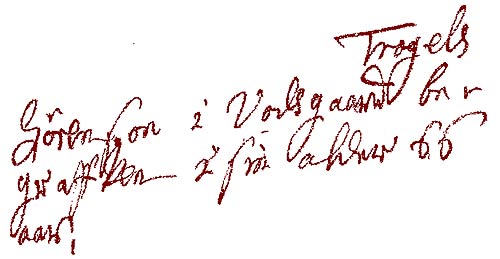 Trogels
Sörensøn i Vorsgaard be
graffven i sin alder 66
aar,